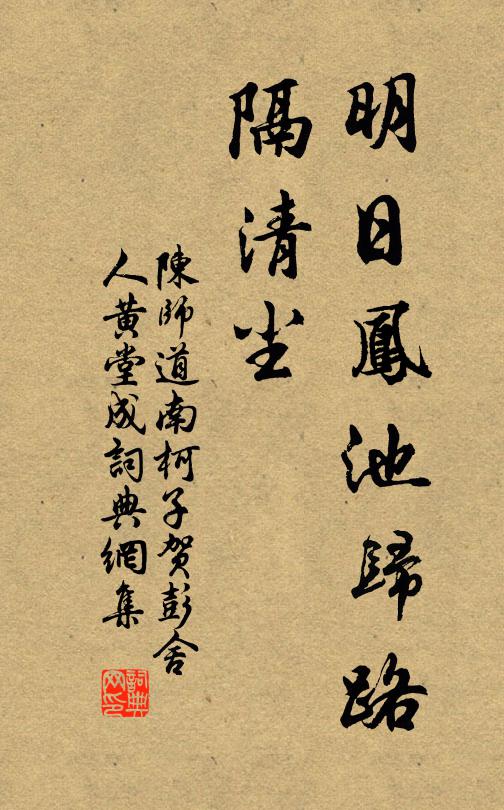 明日鳳池歸路
隔清尘
陳師道南柯子賀彭舍
人黄堂成詞典網集
詞典
网印